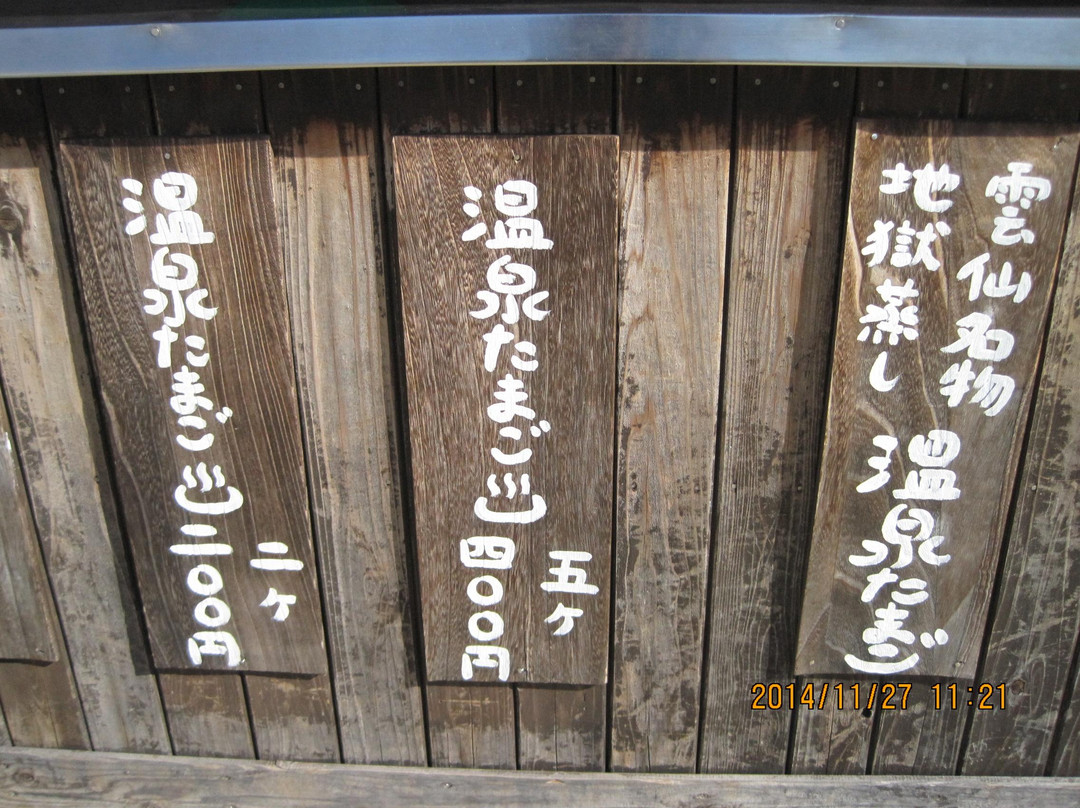 雲仙名物
地獄蒸し
温泉たまご
温泉たまご♨
五ヶ
四〇〇円
温泉たまご♨
二ヶ
二〇〇円
2014/11/27 11:21